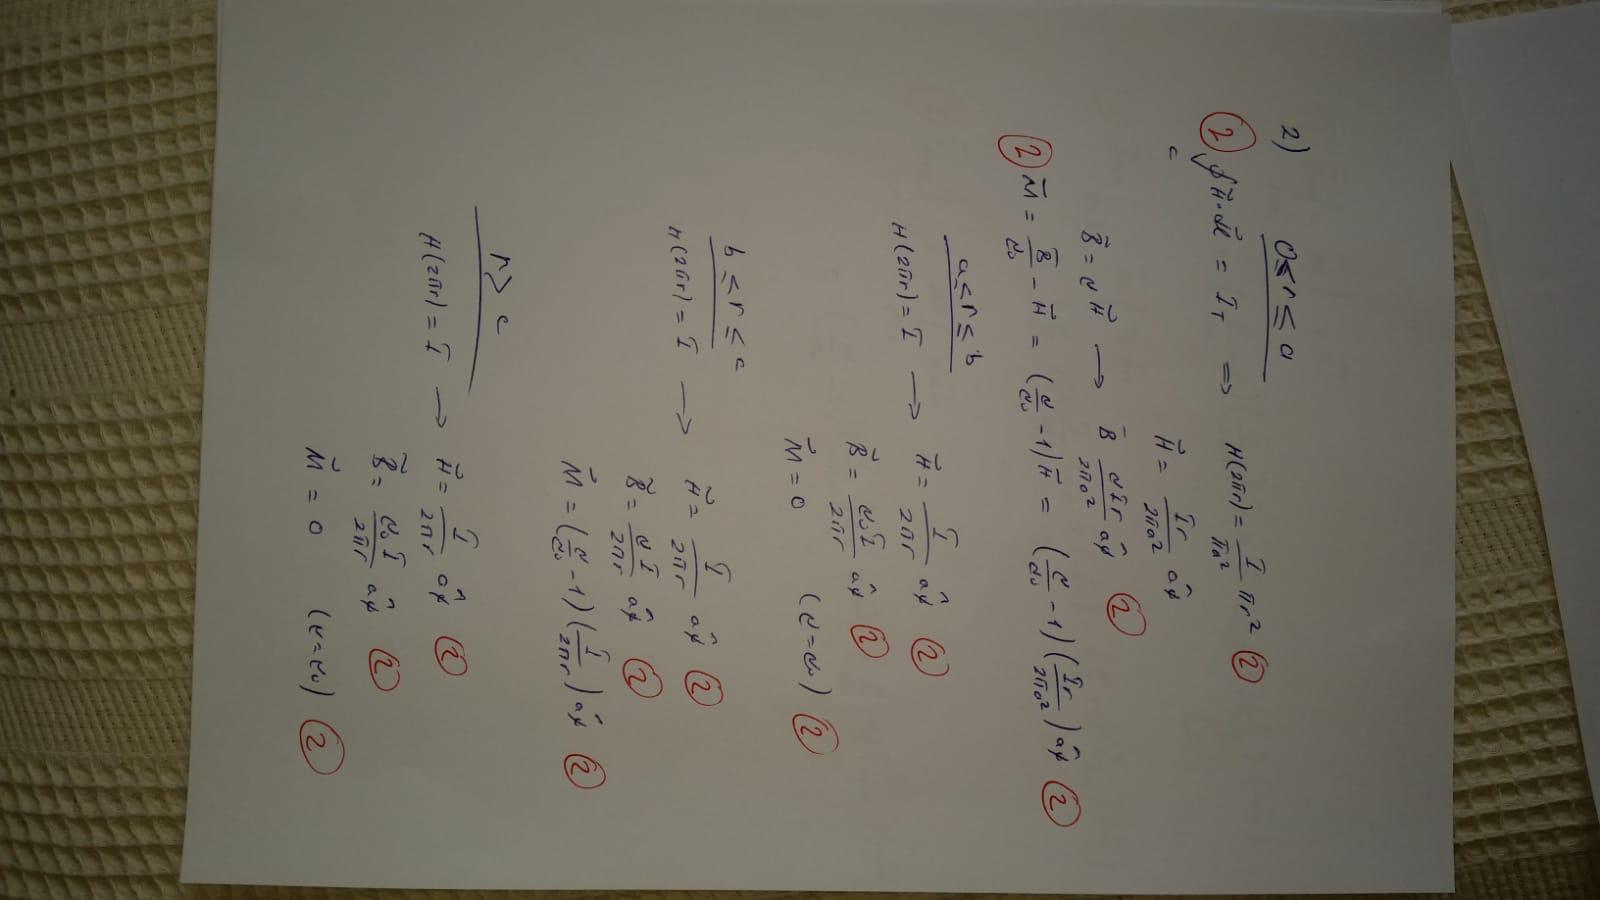 2) 0≤r≤a
② ∮_c H⃗·dl⃗ = I_T ⇒ H(2πr) = I/(πa²) πr² ②
H⃗ = Ir/(2πa²) âϕ
B⃗ = μH⃗ → B̄ μIr/(2πa²) âϕ ②
② M̄ = B̄/μ₀ − H̄ = (μ/μ₀ − 1)H̄ = (μ/μ₀ − 1)(Ir/(2πa²)) âϕ ②
a≤r≤b
H(2πr) = I → H⃗ = I/(2πr) âϕ ②
B⃗ = μ₀I/(2πr) âϕ ②
M⃗ = 0 (μ=μ₀) ②
b≤r≤c
H(2πr) = I → H⃗ = I/(2πr) âϕ ②
B⃗ = μI/(2πr) âϕ ②
M⃗ = (μ/μ₀ − 1)(I/(2πr)) âϕ ②
r> c
H(2πr) = I → H⃗ = I/(2πr) âϕ ②
B⃗ = μ₀I/(2πr) âϕ ②
M⃗ = 0 (μ=μ₀) ②